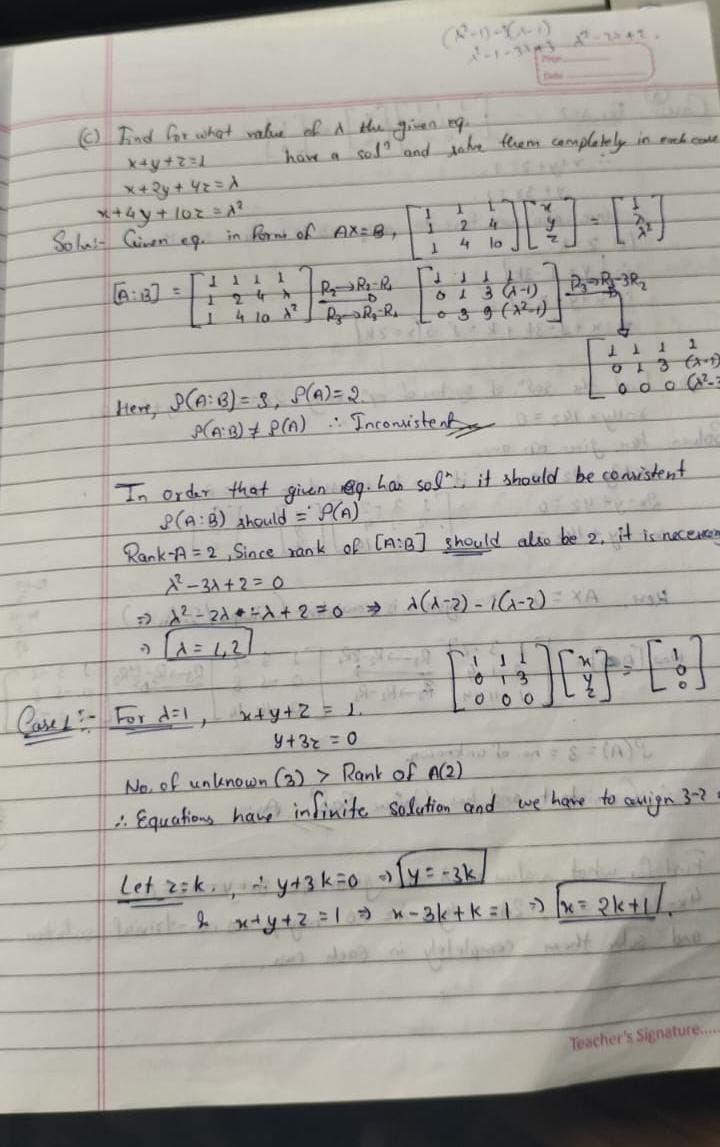 (λ²-1)-3(λ-1)
λ²-1-3λ+3 λ²-3λ+2.
Page
Date
(c) Find for what value of λ the given eq.
x+y+z=1 have a solⁿ and solve them completely in each case
x+2y+4z=λ
x+4y+10z=λ²
Solⁿ:- Given eq. in form of AX=B, [1 1 1; 1 2 4; 1 4 10] [x; y; z] = [1; λ; λ²]
[A:B] = [1 1 1 1; 1 2 4 λ; 1 4 10 λ²] R₂→R₂-R₁ R₃→R₃-R₁ [1 1 1 1; 0 1 3 (λ-1); 0 3 9 (λ²-1)] R₃→R₃-3R₂
[1 1 1 1
0 1 3 (λ-1)
0 0 0 (λ²-3
Here, ρ(A:B)=3, ρ(A)=2
ρ(A:B) ≠ ρ(A) ∴ Inconsistent
In order that given eq. has solⁿ, it should be consistent
ρ(A:B) should = ρ(A)
Rank A=2, Since rank of [A:B] should also be 2, it is
λ²-3λ+2=0
⇒ λ²-2λ-λ+2=0 ⇒ λ(λ-2)-1(λ-2)
⇒ λ=1,2
[1 1 1; 0 1 3; 0 0 0] [x; y; z] = [1; 0; 0]
Case 1:- For λ=1, x+y+z=1.
y+3z=0
No. of unknown (3) > Rank of A(2)
∴ Equations have infinite solution and we have to assign 3-2
Let z=k, ∴ y+3k=0 ⇒ y=-3k
& x+y+z=1 ⇒ x-3k+k=1 ⇒ x=2k+1.
Teacher's Signature.....